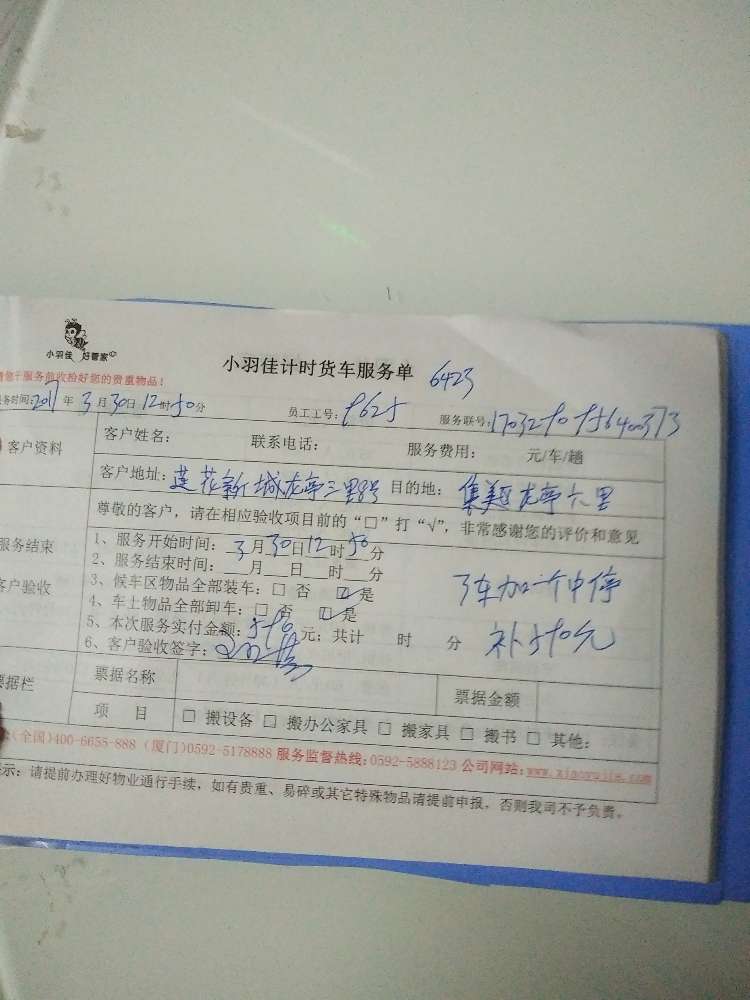 小羽佳 好管家
小羽佳计时货车服务单 6423
服务前收拾好您的贵重物品！
务时间:2017年3月30日12时50分 员工工号: 9625 服务联号:
客户资料 客户姓名： 联系电话： 服务费用： 元/车/趟
客户地址: 莲花新城龙亭三里8号 目的地: 集美区龙亭六里
尊敬的客户，请在相应验收项目前的“□”打“√”，非常感谢您的评价和意见
服务结束
客户验收
1、服务开始时间: 3月30日12时50分
2、服务结束时间:___月___日___时___分
3、候车区物品全部装车: □ 否 ☑ 是
4、车上物品全部卸车: □ 否 ☑ 是
5、本次服务实付金额: 590元; 共计 时 分
6、客户验收签字:
3车加一个中停
补590元
票据栏 票据名称 票据金额
项 目 □ 搬设备 □ 搬办公家具 □ 搬家具 □ 搬书 □ 其他:
(全国)400-6658-888 (厦门)0592-5178888 服务监督热线:0592-5888123 公司网站: www.xiaoyujia.com
示: 请提前办理好物业通行手续，如有贵重、易碎或其它特殊物品请提前申报，否则我司不予负责。